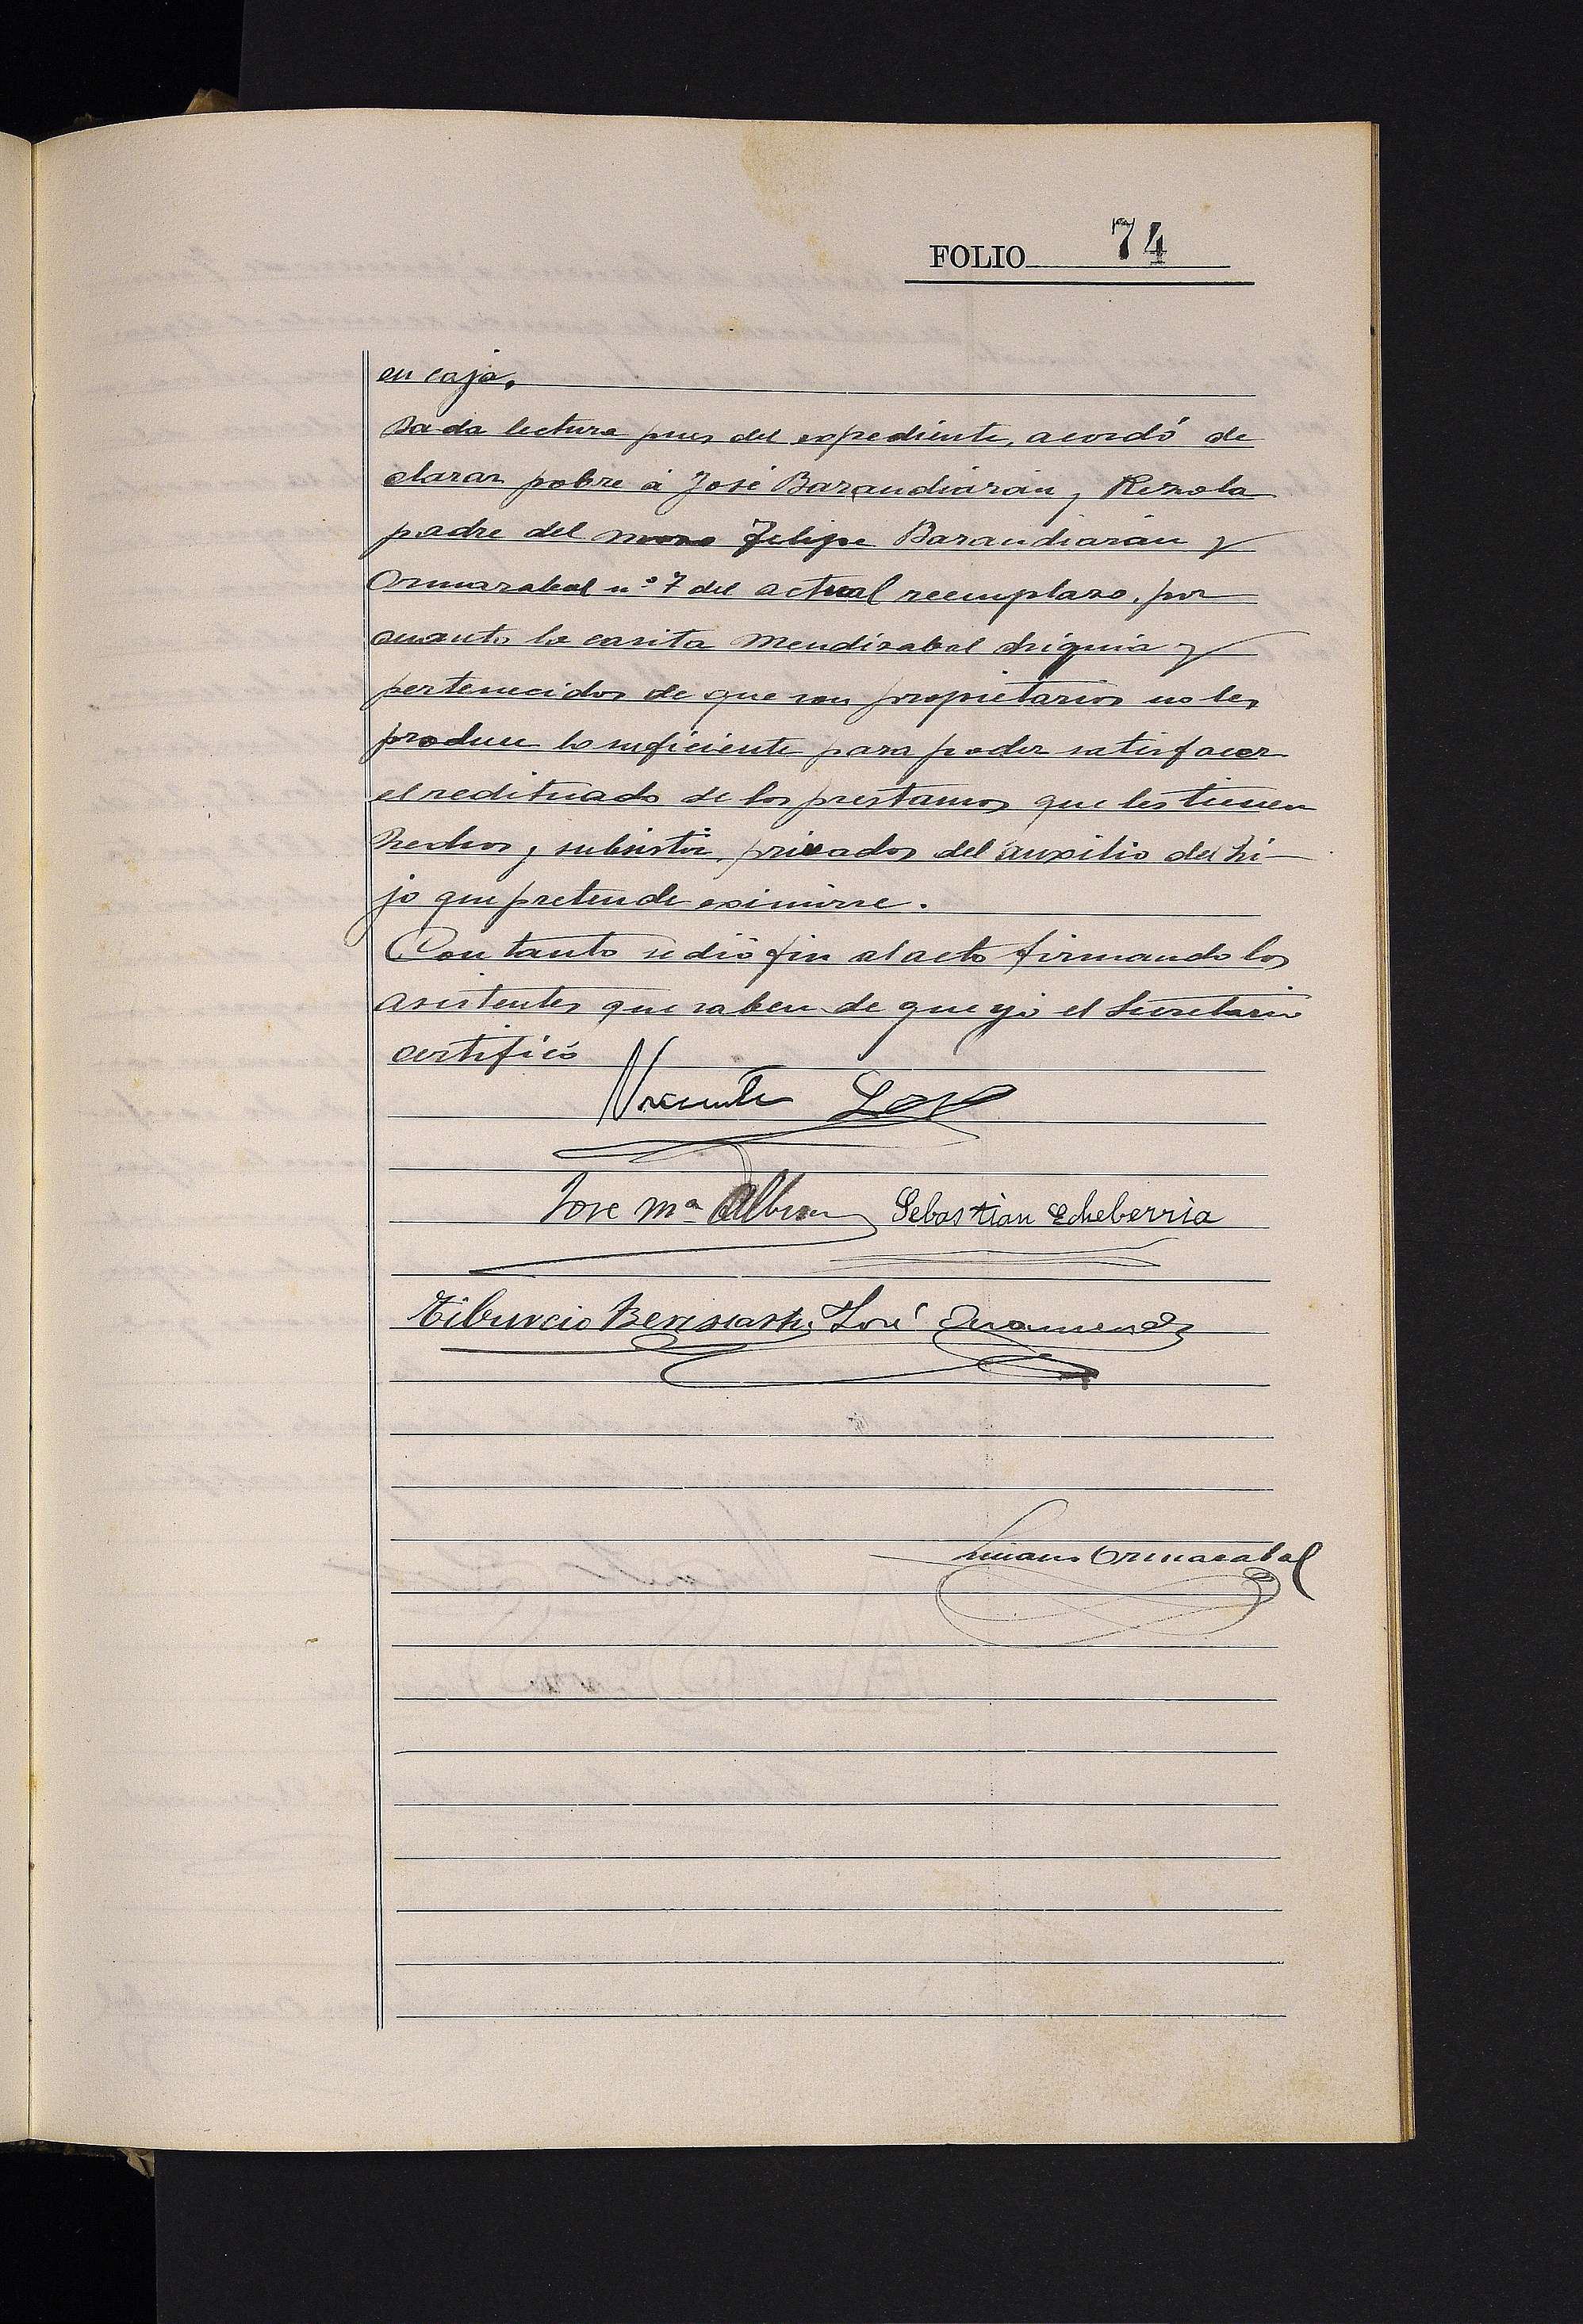 FOLIO 74
en caja.
Dada lectura pues del expediente, acordó de
clarar pobre á José Barandiarán y Rezola
padre del mozo Felipe Barandiarán y
Ormazabal nº 7 del actual reemplazo, por
cuanto la casita Mendizabal chiquia y
pertenecidos de que son propietarios no les
produce lo suficiente para poder satisfacer
el redituado de los prestamos que les tienen
hechos y subsistir, privados del auxilio del hi-
jo que pretende eximirse.
Con tanto se dió fin al acto firmando los
asistentes que saben de que yó el Secretario
certificó
Vicente
José Mª Sebastian Echeberria
Tiburcio José
Luciano Ormazabal